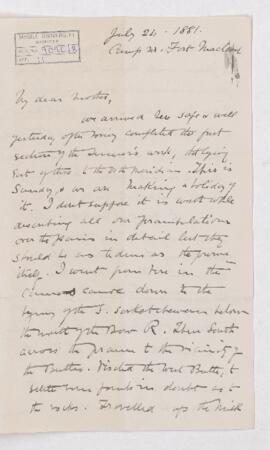 McGILL UNIVERSITY
ARCHIVES
ACC. NO.
REF. 11
July 24. 1881.
Camp 21. Fort Macleod
My dear Mother,
we arrived here safe & well
yesterday after having completed the first
section of the summer's work, that lying
East of this to the Meridian. This is
Sunday, & we are making a holiday of
it. I don't suppose it is worth while
recounting all our perambulations
over the plains in detail lest they
should be as tedious as the journey
itself. I went from here in the
canvas canoe down to the
of the S. Saskatchewan below
the mouth of the Bow R. Then South
across the prairie to the vicinity of
the Buttes. Visited the West Butte, to
settle some points in doubt as to
the rocks. Travelled up the Milk